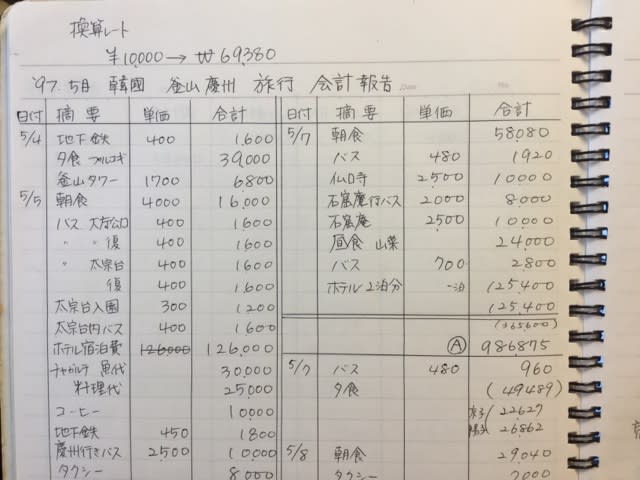 換算レート
¥10,000→₩69,380
'97.5月 韓國 釜山 慶州 旅行 会計報告
日付 摘要 単価 合計
5/4 地下鉄 400 1,600
夕食 プルコギ 39,000
釜山タワー 1700 6800
5/5 朝食 4000 16,000
バス 400 1600
〃 〃 復 400 1600
〃 太宗台 400 1600
復 400 1600
太宗台入園 300 1200
太宗台内バス 400 1600
ホテル宿泊費 126000 126,000
チャガルチ 魚代 30,000
料理代 25,000
コーヒー 10000
地下鉄 450 1800
慶州行きバス 2,500 10,000
タクシー 8000
日付 摘要 単価 合計
5/7 朝食 58,080
バス 480 1920
仏口寺 2,500 10000
石窟庵行バス 2000 8000
石窟庵 2500 10,000
昼食 山菜 24,000
バス 700 2,800
ホテル2泊分 一泊 125,400
125,400
(365,600)
Ⓐ 986,875
5/7 バス 480 960
夕食 (49489)
22627
26,862
5/8 朝食 29,040
タクシー 2000